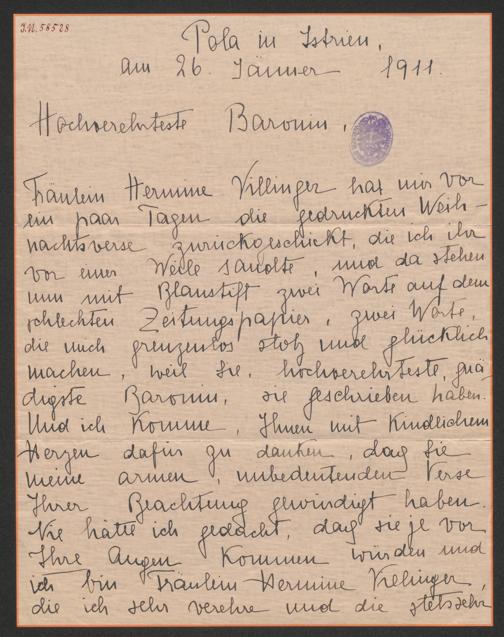 J.N. 58528
Pola in Istrien,
am 26. Jänner 1911.
Hochverehrteste Baronin,
Fräulein Hermine Villinger hat mir vor
ein paar Tagen die gedruckten Weih-
nachtsverse zurückgeschickt, die ich ihr
vor einer Weile sandte, und da stehen
nun mit Blaustift zwei Worte auf dem
schlechten Zeitungspapier, zwei Worte,
die mich grenzenlos stolz und glücklich
machen, weil Sie, hochverehrteste, gnä-
digste Baronin, sie geschrieben haben.
Und ich komme, Ihnen mit kindlichem
Herzen dafür zu danken, dag Sie
meine armen, unbedeutenden Verse
Ihrer Beachtung gewürdigt haben.
Nie hätte ich gedacht, dag sie je vor
Ihre Augen kommen würden und
ich bin Fräulein Hermine Villinger,
die ich sehr verehre und die stets sehr